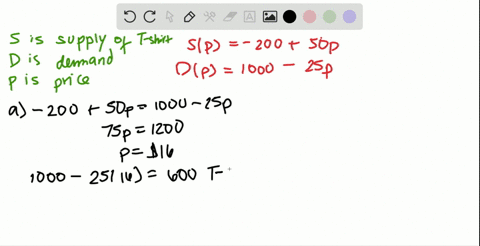 S is supply of T-shirt
D is demand
P is price
S(p) = -200 + 50p
D(p) = 1000 - 25p
a) -200 + 50p = 1000 - 25p
75p = 1200
p = $16
1000 - 25(16) = 600 T-